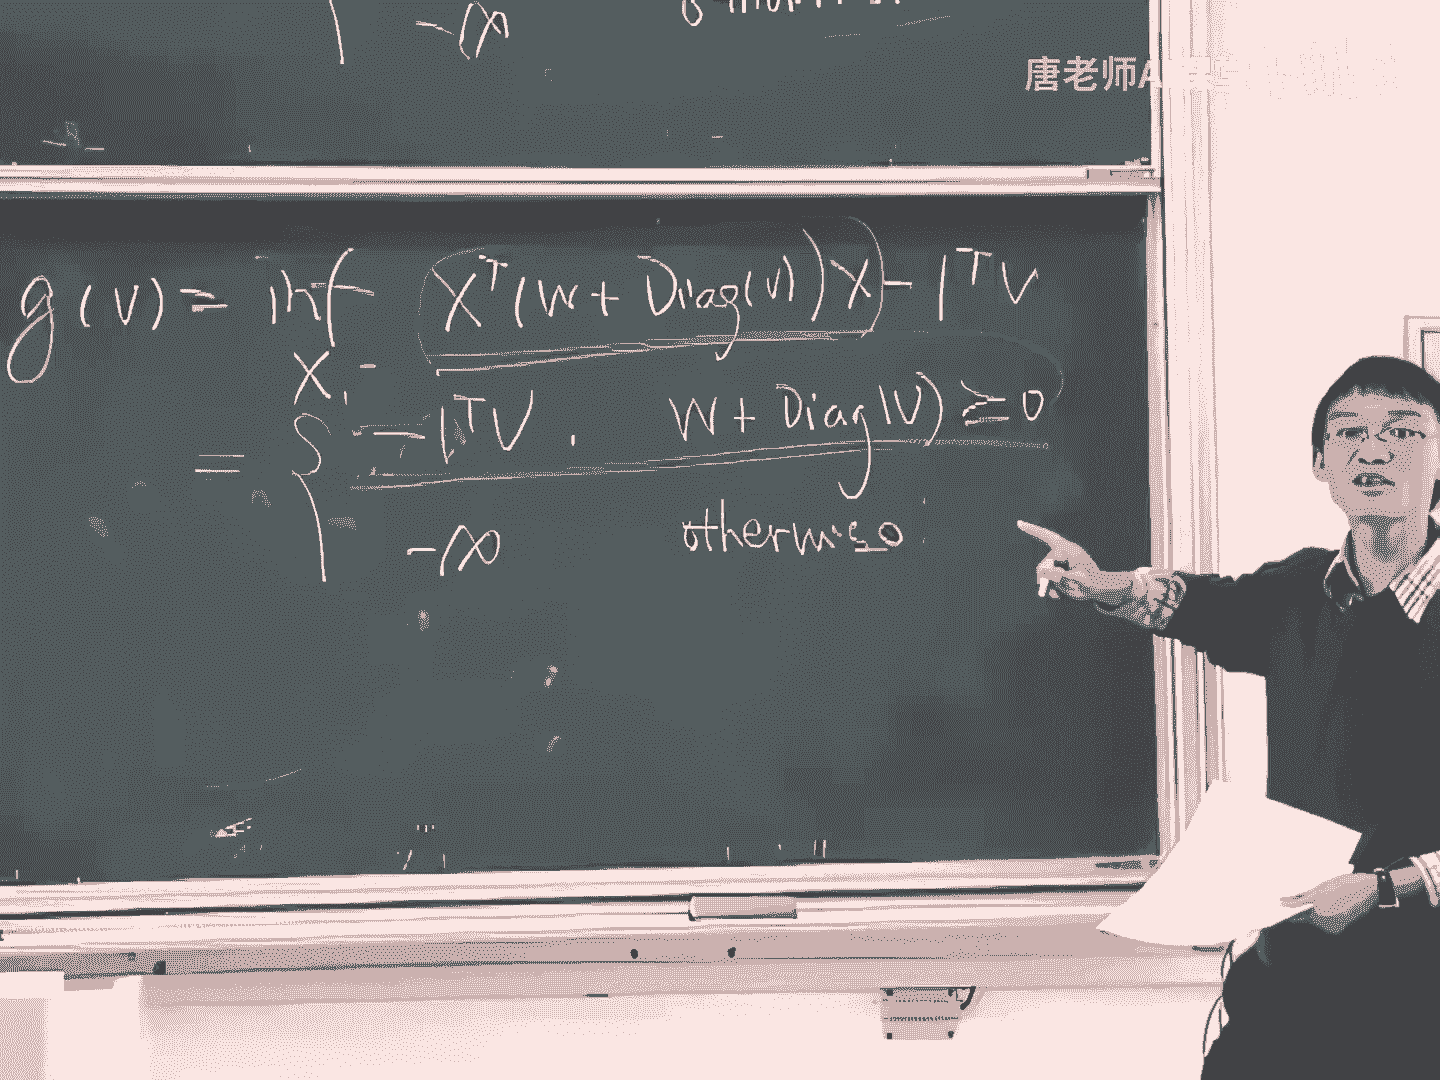 -∞
唐老师A
g(v) = inf x^T(W + Diag(v))x - 1^T v
x
= { -1^T v, W + Diag(v) ≥ 0
-∞ otherwise